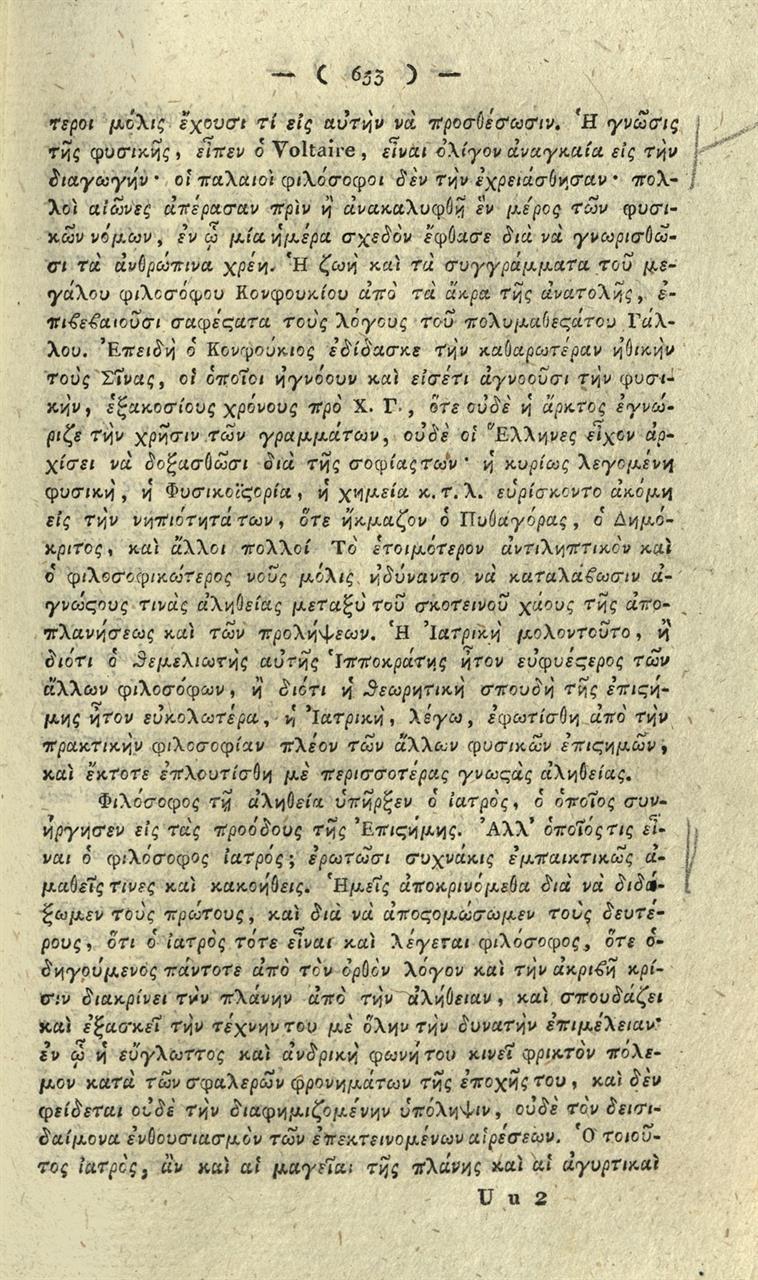 — ( 653 ) —
τεροι μόλις ἔχουσι τί εἰς αὐτὴν νὰ προσθέσωσιν. Ἡ γνῶσις
τῆς φυσικῆς, εἶπεν ὁ Voltaire, εἶναι ὀλίγον ἀναγκαία εἰς τὴν
διαγωγήν· οἱ παλαιοὶ φιλόσοφοι δὲν τὴν ἐχρειάσθησαν· πολ-
λοὶ αἰῶνες ἀπέρασαν πρὶν ἢ ἀνακαλυφθῇ ἓν μέρος τῶν φυσι-
κῶν νόμων, ἐν ᾧ μία ἡμέρα σχεδὸν ἔφθασε διὰ νὰ γνωρισθῶ-
σι τὰ ἀνθρώπινα χρέη. Ἡ ζωὴ καὶ τὰ συγγράμματα τοῦ με-
γάλου φιλοσόφου Κονφουκίου ἀπὸ τὰ ἄκρα τῆς ἀνατολῆς, ἐ-
πιβεβαιοῦσι σαφέϛατα τοὺς λόγους τοῦ πολυμαθεϛάτου Γάλ-
λου. Ἐπειδὴ ὁ Κονφούκιος ἐδίδασκε τὴν καθαρωτέραν ἠθικὴν
τοὺς Σῖνας, οἱ ὁποῖοι ἠγνόουν καὶ εἰσέτι ἀγνοοῦσι τὴν φυσι-
κὴν, ἑξακοσίους χρόνους πρὸ Χ. Γ., ὅτε οὐδὲ ἡ ἄρκτος ἐγνώ-
ριζε τὴν χρῆσιν τῶν γραμμάτων, οὐδὲ οἱ Ἕλληνες εἶχον ἀρ-
χίσει νὰ δοξασθῶσι διὰ τῆς σοφίας των· ἡ κυρίως λεγομένη
φυσικὴ, ἡ Φυσικοϊϛορία, ἡ χημεία κ. τ. λ. εὑρίσκοντο ἀκόμη
εἰς τὴν νηπιότητά των, ὅτε ἤκμαζον ὁ Πυθαγόρας, ὁ Δημό-
κριτος, καὶ ἄλλοι πολλοί Τὸ ἑτοιμότερον ἀντιληπτικὸν καὶ
ὁ φιλοσοφικώτερος νοῦς μόλις ἠδύναντο νὰ καταλάβωσιν ἀ-
γνώϛους τινὰς ἀληθείας μεταξὺ τοῦ σκοτεινοῦ χάους τῆς ἀπο-
πλανήσεως καὶ τῶν προλήψεων. Ἡ Ἰατρικὴ μολοντοῦτο, ἢ
διότι ὁ θεμελιωτὴς αὐτῆς Ἱπποκράτης ἦτον εὐφυέϛερος τῶν
ἄλλων φιλοσόφων, ἢ διότι ἡ θεωρητικὴ σπουδὴ τῆς ἐπιϛή-
μης ἦτον εὐκολωτέρα, ἡ Ἰατρικὴ, λέγω, ἐφωτίσθη ἀπὸ τὴν
πρακτικὴν φιλοσοφίαν πλέον τῶν ἄλλων φυσικῶν ἐπιϛημῶν,
καὶ ἔκτοτε ἐπλουτίσθη μὲ περισσοτέρας γνωϛὰς ἀληθείας.
Φιλόσοφος τῇ ἀληθείᾳ ὑπῆρξεν ὁ ἰατρὸς, ὁ ὁποῖος συν-
ήργησεν εἰς τὰς προόδους τῆς Ἐπιϛήμης. Ἀλλ' ὁποῖός τις εἶ-
ναι ὁ φιλόσοφος ἰατρός; ἐρωτῶσι συχνάκις ἐμπαικτικῶς ἀ-
μαθεῖς τινες καὶ κακοήθεις. Ἡμεῖς ἀποκρινόμεθα διὰ νὰ διδά-
ξωμεν τοὺς πρώτους, καὶ διὰ νὰ ἀποϛομώσωμεν τοὺς δευτέ-
ρους, ὅτι ὁ ἰατρὸς τότε εἶναι καὶ λέγεται φιλόσοφος, ὅτε ὁ-
δηγούμενος πάντοτε ἀπὸ τὸν ὀρθὸν λόγον καὶ τὴν ἀκριβῆ κρί-
σιν διακρίνει τὴν πλάνην ἀπὸ τὴν ἀλήθειαν, καὶ σπουδάζει
καὶ ἐξασκεῖ τὴν τέχνην του μὲ ὅλην τὴν δυνατὴν ἐπιμέλειαν·
ἐν ᾧ ἡ εὔγλωττος καὶ ἀνδρικὴ φωνή του κινεῖ φρικτὸν πόλε-
μον κατὰ τῶν σφαλερῶν φρονημάτων τῆς ἐποχῆς του, καὶ δὲν
φείδεται οὐδὲ τὴν διαφημιζομένην ὑπόληψιν, οὐδὲ τὸν δεισι-
δαίμονα ἐνθουσιασμὸν τῶν ἐπεκτεινομένων αἱρέσεων. Ὁ τοιοῦ-
τος ἰατρὸς, ἂν καὶ αἱ μαγεῖαι τῆς πλάνης καὶ αἱ ἀγυρτικαὶ
U u 2